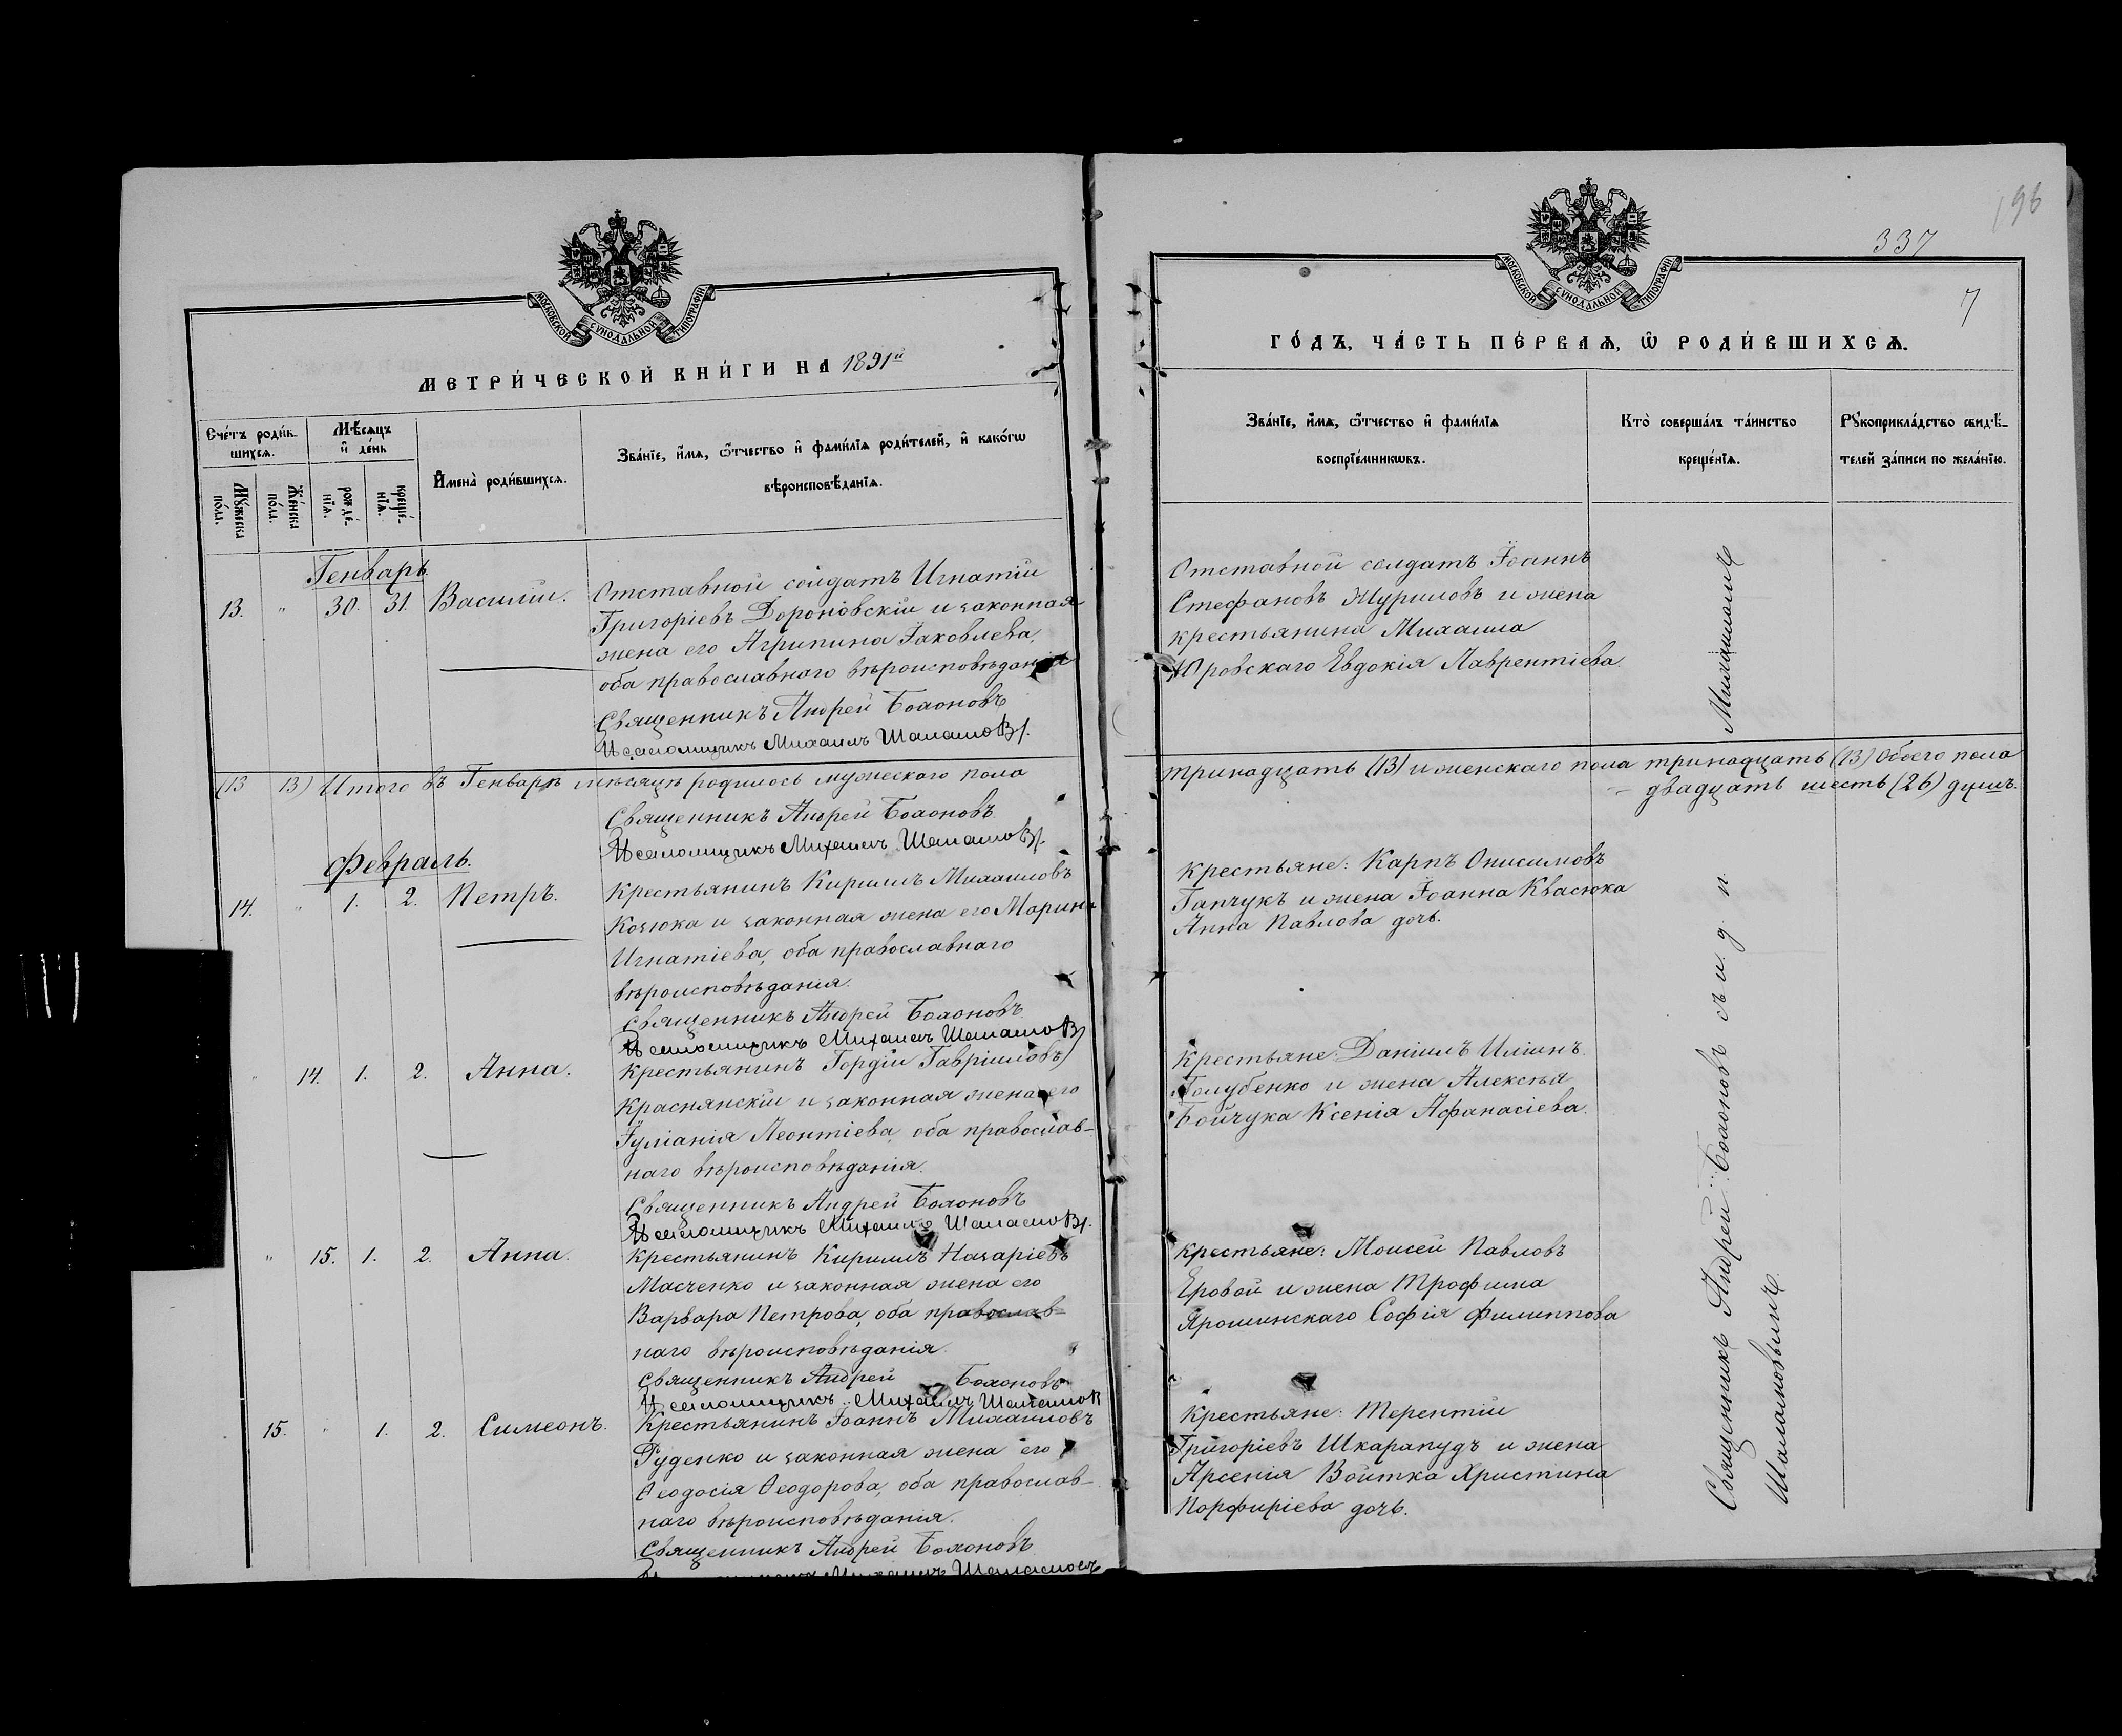 МОСКОВСКОЙ СѴНОДАЛЬНОЙ ТИПОГРАФІИ
МЕТРИ́ЧЕСКОЙ КНИ́ГИ НА 1891й
Сче́тъ роди́вшихсѧ.
Мѣ́сѧцъ и҆ де́нь
И҆мена̀ роди́вшихсѧ.
Зва́нїе, и҆́мѧ, ѻ҆́тчество и҆ фами́лїѧ роди́телей, и҆ како́гѡ
вѣроисповѣ́данїѧ.
Мꙋ́жеска по́ла.
Же́нска по́ла.
рожде́нїѧ.
креще́нїѧ.
Генварь.
13. " 30. 31. Василій. Отставной солдатъ Игнатій
Григоріевъ Дороновскій и законная
жена его Агрипина Іаковлева,
оба православнаго вѣроисповѣданія
Священникъ Андрей Бохоновъ
Псаломщикъ Михаилъ Шаламовъ
(13 13) Итого въ Генварѣ мѣсяцѣ родилось мужескаго пола
Священникъ Андрей Бохоновъ
Псаломщикъ Михаилъ Шаламовъ
Февраль.
14. " 1. 2. Петръ. Крестьянинъ Кириллъ Михаиловъ
Козюка и законная жена его Марина
Игнатіева, оба православнаго
вѣроисповѣданія.
Священникъ Андрей Бохоновъ
Псаломщикъ Михаилъ Шаламовъ
" 14. 1. 2. Анна. Крестьянинъ Гордій Гавріиловъ
Краснянскій и законная жена его
Іуліанія Леонтіева, оба православ-
наго вѣроисповѣданія.
Священникъ Андрей Бохоновъ
Псаломщикъ Михаилъ Шаламовъ
" 15. 1. 2. Анна. Крестьянинъ Кириллъ Назаріевъ
Масченко и законная жена его
Варвара Петрова, оба православ-
наго вѣроисповѣданія.
Священникъ Андрей Бохоновъ
Псаломщикъ Михаилъ Шаламовъ
15. " 1. 2. Симеонъ. Крестьянинъ Іоаннъ Михаиловъ
Руденко и законная жена его
Ѳеодосія Ѳеодорова, оба православ-
наго вѣроисповѣданія.
Священникъ Андрей Бохоновъ
Михаилъ Шаламовъ
196
337
7
МОСКОВСКОЙ СѴНОДАЛЬНОЙ ТИПОГРАФІИ
ГО́ДЪ, ЧА́СТЬ ПЕ́РВАѦ, Ѡ҆ РОДИ́ВШИХСѦ.
Зва́нїе, и҆́мѧ, ѻ҆́тчество и҆ фами́лїѧ
воспрїе́мникѡвъ.
Кто̀ соверша́лъ та́инство
креще́нїѧ.
Рꙋкоприкла́дство свидѣ́-
телей за́писи по жела́нїю.
Отставной солдатъ Іоаннъ
Стефановъ Журиловъ и жена
крестьянина Михаила
Юровскаго Евдокія Лаврентіева.
тринадцать (13) и женскаго пола тринадцать (13) Обоего пола
двадцать шесть (26) душъ.
Крестьяне: Карпъ Онисимовъ
Ганчукъ и жена Іоанна Квасюка
Анна Павлова дочь.
Крестьяне: Даніилъ Иліинъ
Голубенко и жена Алексѣя
Бойчука Ксенія Афанасіева.
Крестьяне: Моисей Павловъ
Еровой и жена Трофима
Ярошинскаго Софія Филиппова
Крестьяне: Терентій
Григоріевъ Шкарапудъ и жена
Арсенія Войтка Христина
Порфиріева дочь.
Священникъ Андрей Бохоновъ съ и. д. п.
Шаламовымъ.